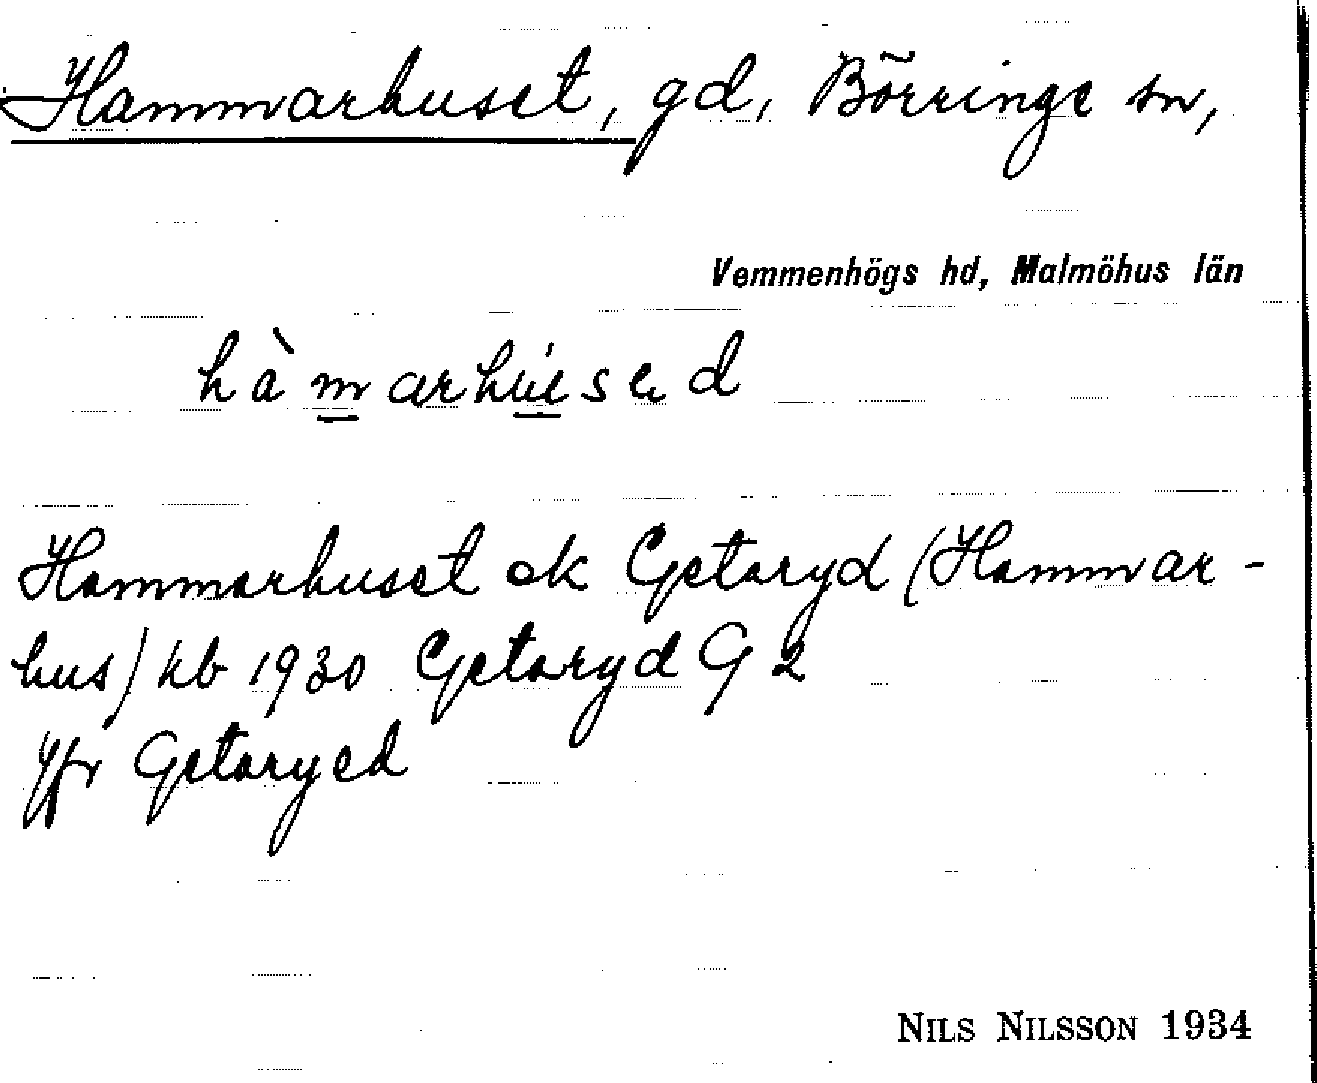 Hammarhuset, gd, Börringe sn,
Vemmenhögs hd, Malmöhus län
hàmarhúsed
Hammarhuset ok Getaryd (Hammar-
hus) kb 1930 Getaryd G 2
Jfr Getaryed
NILS NILSSON 1934